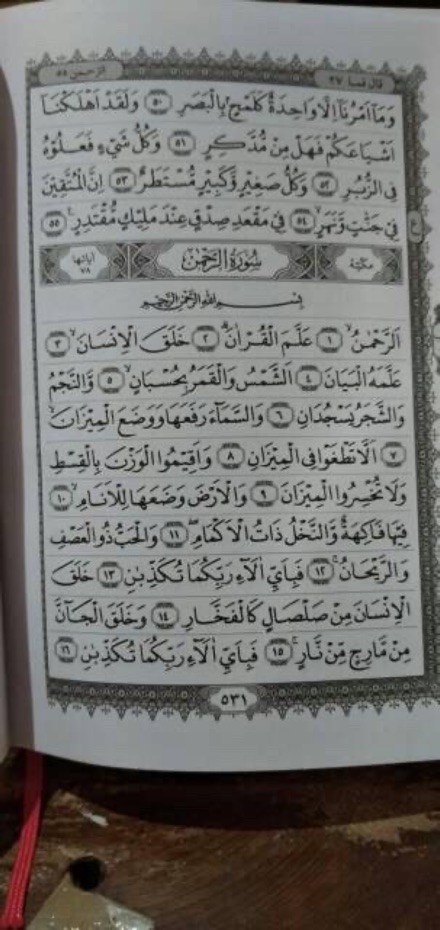 قال فما ٢٧
الرحمن ٥٥
وَمَآ اَمْرُنَآ اِلَّا وَاحِدَةٌ كَلَمْحٍۢ بِالْبَصَرِ ٥٠ وَلَقَدْ اَهْلَكْنَآ
اَشْيَاعَكُمْ فَهَلْ مِنْ مُّدَّكِرٍ ٥١ وَكُلُّ شَيْءٍ فَعَلُوْهُ
فِى الزُّبُرِ ٥٢ وَكُلُّ صَغِيْرٍ وَّكَبِيْرٍ مُّسْتَطَرٌ ٥٣ اِنَّ الْمُتَّقِيْنَ
فِيْ جَنّٰتٍ وَّنَهَرٍۙ ٥٤ فِيْ مَقْعَدِ صِدْقٍ عِنْدَ مَلِيْكٍ مُّقْتَدِرٍ ٥٥
مكية
سُوْرَةُ الرَّحْمٰنِ
آياتها ٧٨
بِسْمِ اللّٰهِ الرَّحْمٰنِ الرَّحِيْمِ
اَلرَّحْمٰنُۙ ١ عَلَّمَ الْقُرْاٰنَۗ ٢ خَلَقَ الْاِنْسَانَۙ ٣
عَلَّمَهُ الْبَيَانَ ٤ اَلشَّمْسُ وَالْقَمَرُ بِحُسْبَانٍۙ ٥ وَّالنَّجْمُ
وَالشَّجَرُ يَسْجُدَانِ ٦ وَالسَّمَآءَ رَفَعَهَا وَوَضَعَ الْمِيْزَانَۙ
٧ اَلَّا تَطْغَوْا فِى الْمِيْزَانِ ٨ وَاَقِيْمُوا الْوَزْنَ بِالْقِسْطِ
وَلَا تُخْسِرُوا الْمِيْزَانَ ٩ وَالْاَرْضَ وَضَعَهَا لِلْاَنَامِۙ ١٠
فِيْهَا فَاكِهَةٌ وَّالنَّخْلُ ذَاتُ الْاَكْمَامِۖ ١١ وَالْحَبُّ ذُو الْعَصْفِ
وَالرَّيْحَانُۚ ١٢ فَبِاَيِّ اٰلَاۤءِ رَبِّكُمَا تُكَذِّبٰنِ ١٣ خَلَقَ
الْاِنْسَانَ مِنْ صَلْصَالٍ كَالْفَخَّارِ ١٤ وَخَلَقَ الْجَآنَّ
مِنْ مَّارِجٍ مِّنْ نَّارٍۚ ١٥ فَبِاَيِّ اٰلَاۤءِ رَبِّكُمَا تُكَذِّبٰنِ ١٦
٥٣١